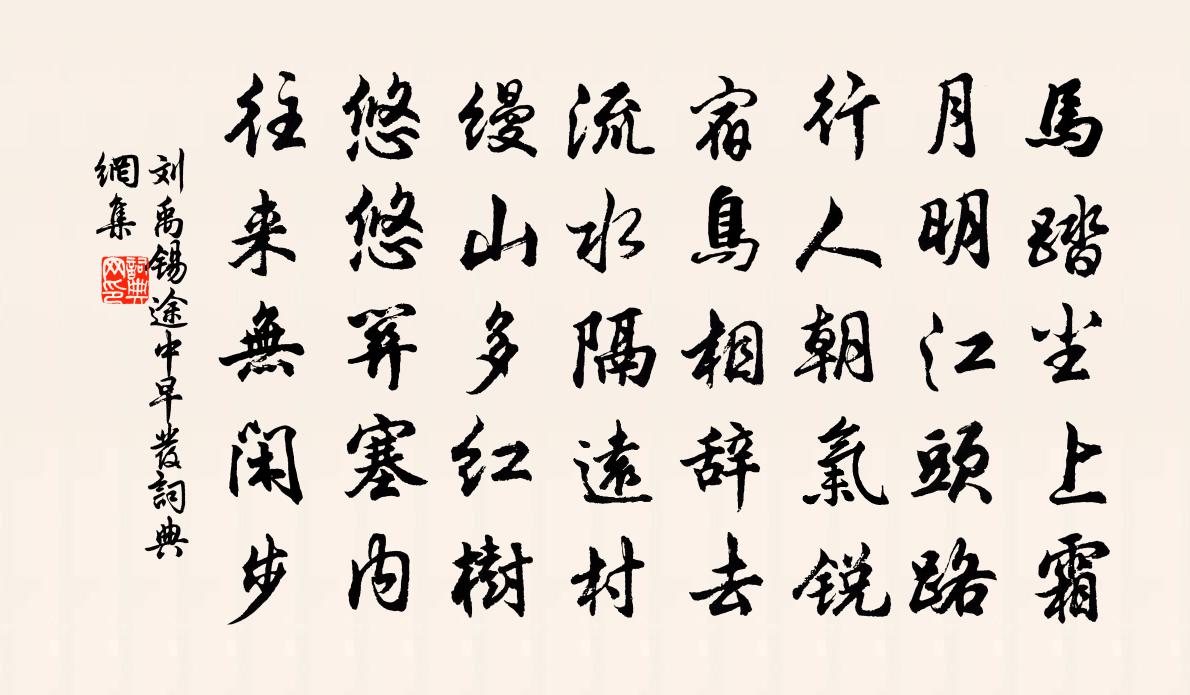 馬踏尘上霜
月明江頭路
行人朝氣锐
宿鳥相辞去
流水隔遠村
缦山多红樹
悠悠関塞内
往来無闲步
刘禹锡途中早發詞典
網集
詞典
网印